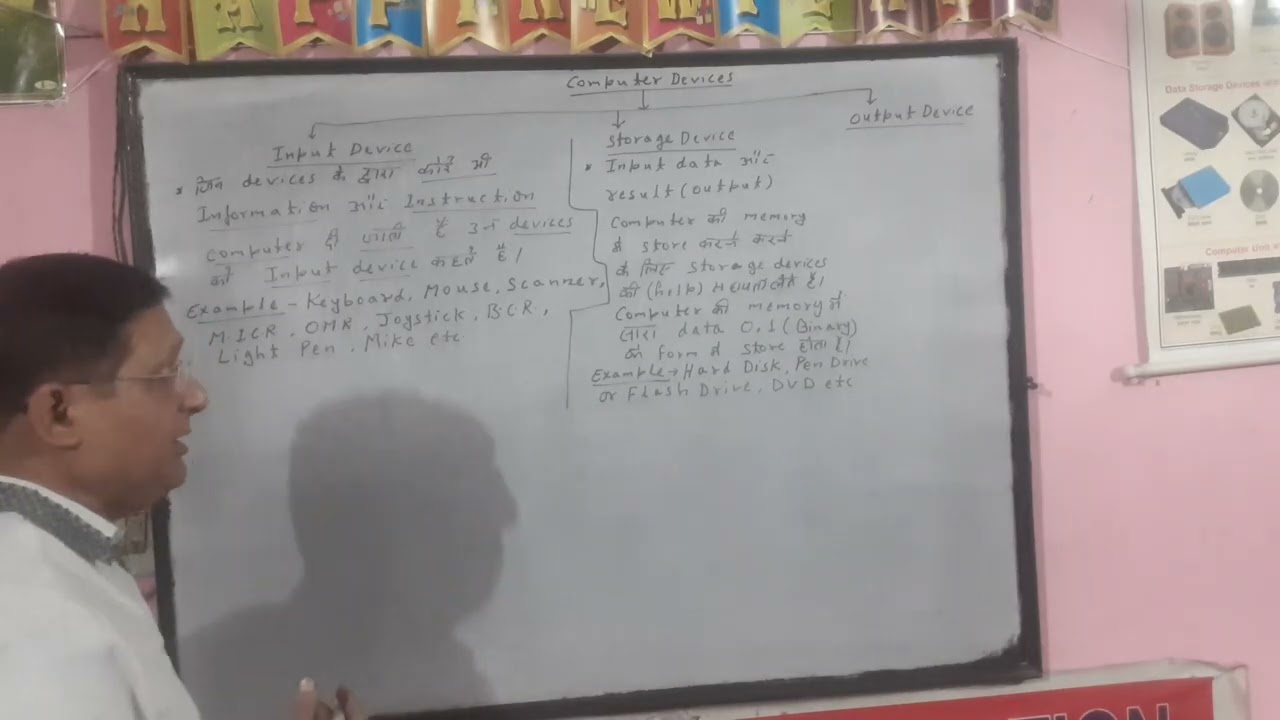 HAPPY NEW YEAR
Computer Devices
Input Device
* जिन devices के द्वारा कोई भी
Information और Instruction
Computer दी जाती है उन devices
को Input device कहते है।
Example - Keyboard, Mouse, Scanner,
M.I.C.R, OMR, Joystick, B.C.R,
Light Pen, Mike etc.
Storage Device
* Input data और
result (output)
Computer की memory
मे store करने करने
के लिए storage devices
की (help) सहायता लेते है।
Computer की memory मे
सारा data 0,1 (Binary)
के form मे store होता है।
Example → Hard Disk, Pen Drive
or Flash Drive, DVD etc
Output Device
Data Storage Devices
Computer Unit